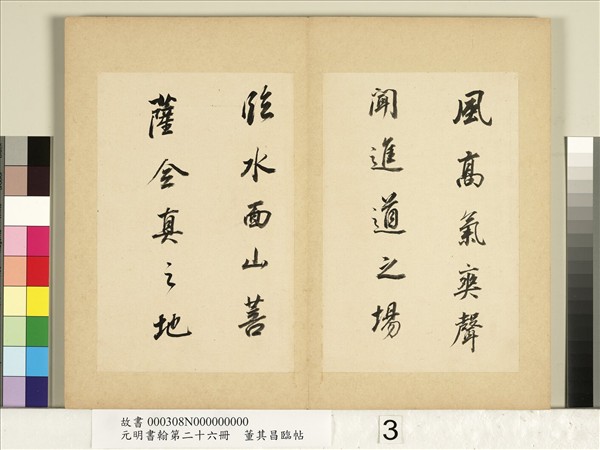 風高氣爽聲
聞進道之場
臨水面山菩
薩全真之地
故書 000308N000000000
元明書翰第二十六冊 董其昌臨帖
3